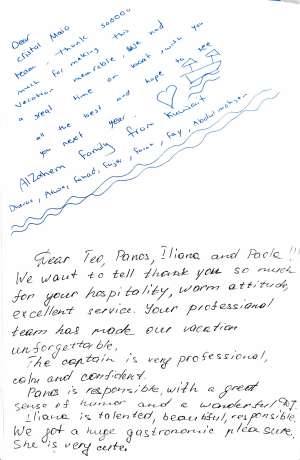 Dear
Cristal Majo
team, thank sooooo
much for making this
vacation memorable, We had
a great time on boat, wish you
all the best and hope to see
you next year.
AlZahem family from Kuwait
Fahad, Fay,
Dear Teo, Panos, Iliana and Paola !!!
We want to tell thank you so much
for your hospitality, warm attitude,
excellent service. Your professional
team has made our vacation
unforgettable.
The captain is very professional,
calm and confident.
Panos is responsible, with a great
sense of humor and a wonderful DJ.
Iliana is talented, beautiful, responsible.
We got a huge gastronomic pleasure.
She is very cute.